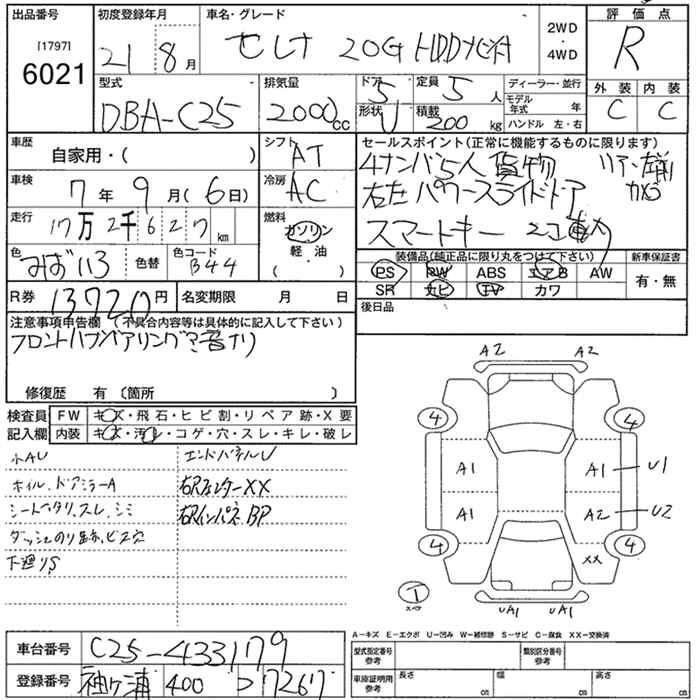 出品番号
[1797]
6021
初度登録年月
21 8月
車名・グレード
セレナ 20G HDDナビ付
2WD
・
4WD
評価点
R
外装 内装
C C
型式
DBA-C25
排気量
2000cc
ドア 5
形状 U
定員 5人
積載 200kg
ディーラー・並行
モデル年式 年
ハンドル 左・右
車歴
自家用・( )
シフト
AT
車検
7年9月(6日)
冷房
AC
走行
17万2千627km
燃料
ガソリン
軽油
( )
色
みずいろ
色替
色コード
B44
R券 13720円
名変期限 月 日
セールスポイント(正常に機能するものに限ります)
4ナンバ5人貨物
右左パワースライドドア
カメラ
スマートキー
装備品(純正品に限り丸をつけて下さい)
PS PW ABS エアB AW
SR ナビ TV カワ
新車保証書
有・無
後日品
注意事項申告欄(不具合内容等は具体的に記入して下さい)
フロントハブベアリング 音ナリ
修復歴 有〔箇所 〕
検査員記入欄
FW キズ・飛石・ヒビ割・リペア跡・X要
内装 キズ・汚レ・コゲ・穴・スレ・キレ・破レ
小AU
エンドパネルU
ホイル、ドアミラーA
右Rフェンダー XX
シートヘタリ、スレ、シミ
右Rインパネ BP
ダッシュのり跡、ビス穴
下廻りS
A2 A2
4 4
A1 A1 U1
A1 A2 U2
4 4
XX
I
スペア
UA1 UA1
A-キズ E-エクボ U-凹み W-補修跡 S-サビ C-腐食 XX-交換済
車台番号 C25-433179
登録番号 袖ヶ浦 400 つ 7267
型式指定番号
参考
類別区分番号
参考
車庫証明用
参考
長さ cm
幅 cm
高さ cm